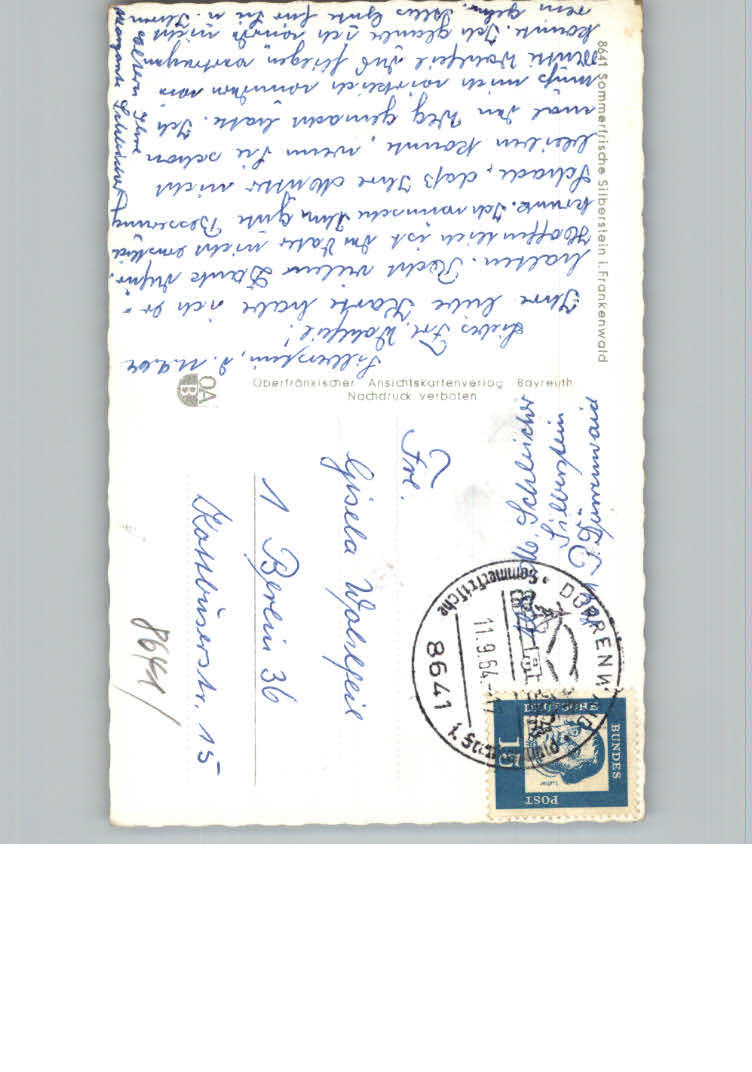 8641 Sommerfrische Silberstein i. Frankenwald
Silberstein, d. 11.9.64
Liebes Frl. Wohlfeil!
Ihre liebe Karte habe ich er-
halten. Recht vielen Dank dafür.
Hoffentlich ist Ihr Vater nicht ernstlich
krank. Ich wünsche Ihm gute Besserung
Schade, daß Ihre Mutter nicht
bleiben konnte, wenn Sie schon
mal den Weg gemacht hatte. Ich
muß mich wirklich wundern was
Mutti Wohlfeil das fliegen vertragen
konnte. Ich glaube ich würde nicht
gehn. Alles Gute für Sie u. Ihren
Eltern Ihre
Margarete Schleicher
Oberfränkischer Ansichtskartenverlag Bayreuth
Nachdruck verboten
OAB
M. Schleicher
Silberstein
Dürrenwaid
Frl.
Gisela Wohlfeil
1 Berlin 36
Kottbuserstr. 15
8641
DÜRRENWAID
Sommerfrische
11.9.64
8641
DEUTSCHE
BUNDES
POST
15
Luther
8641/